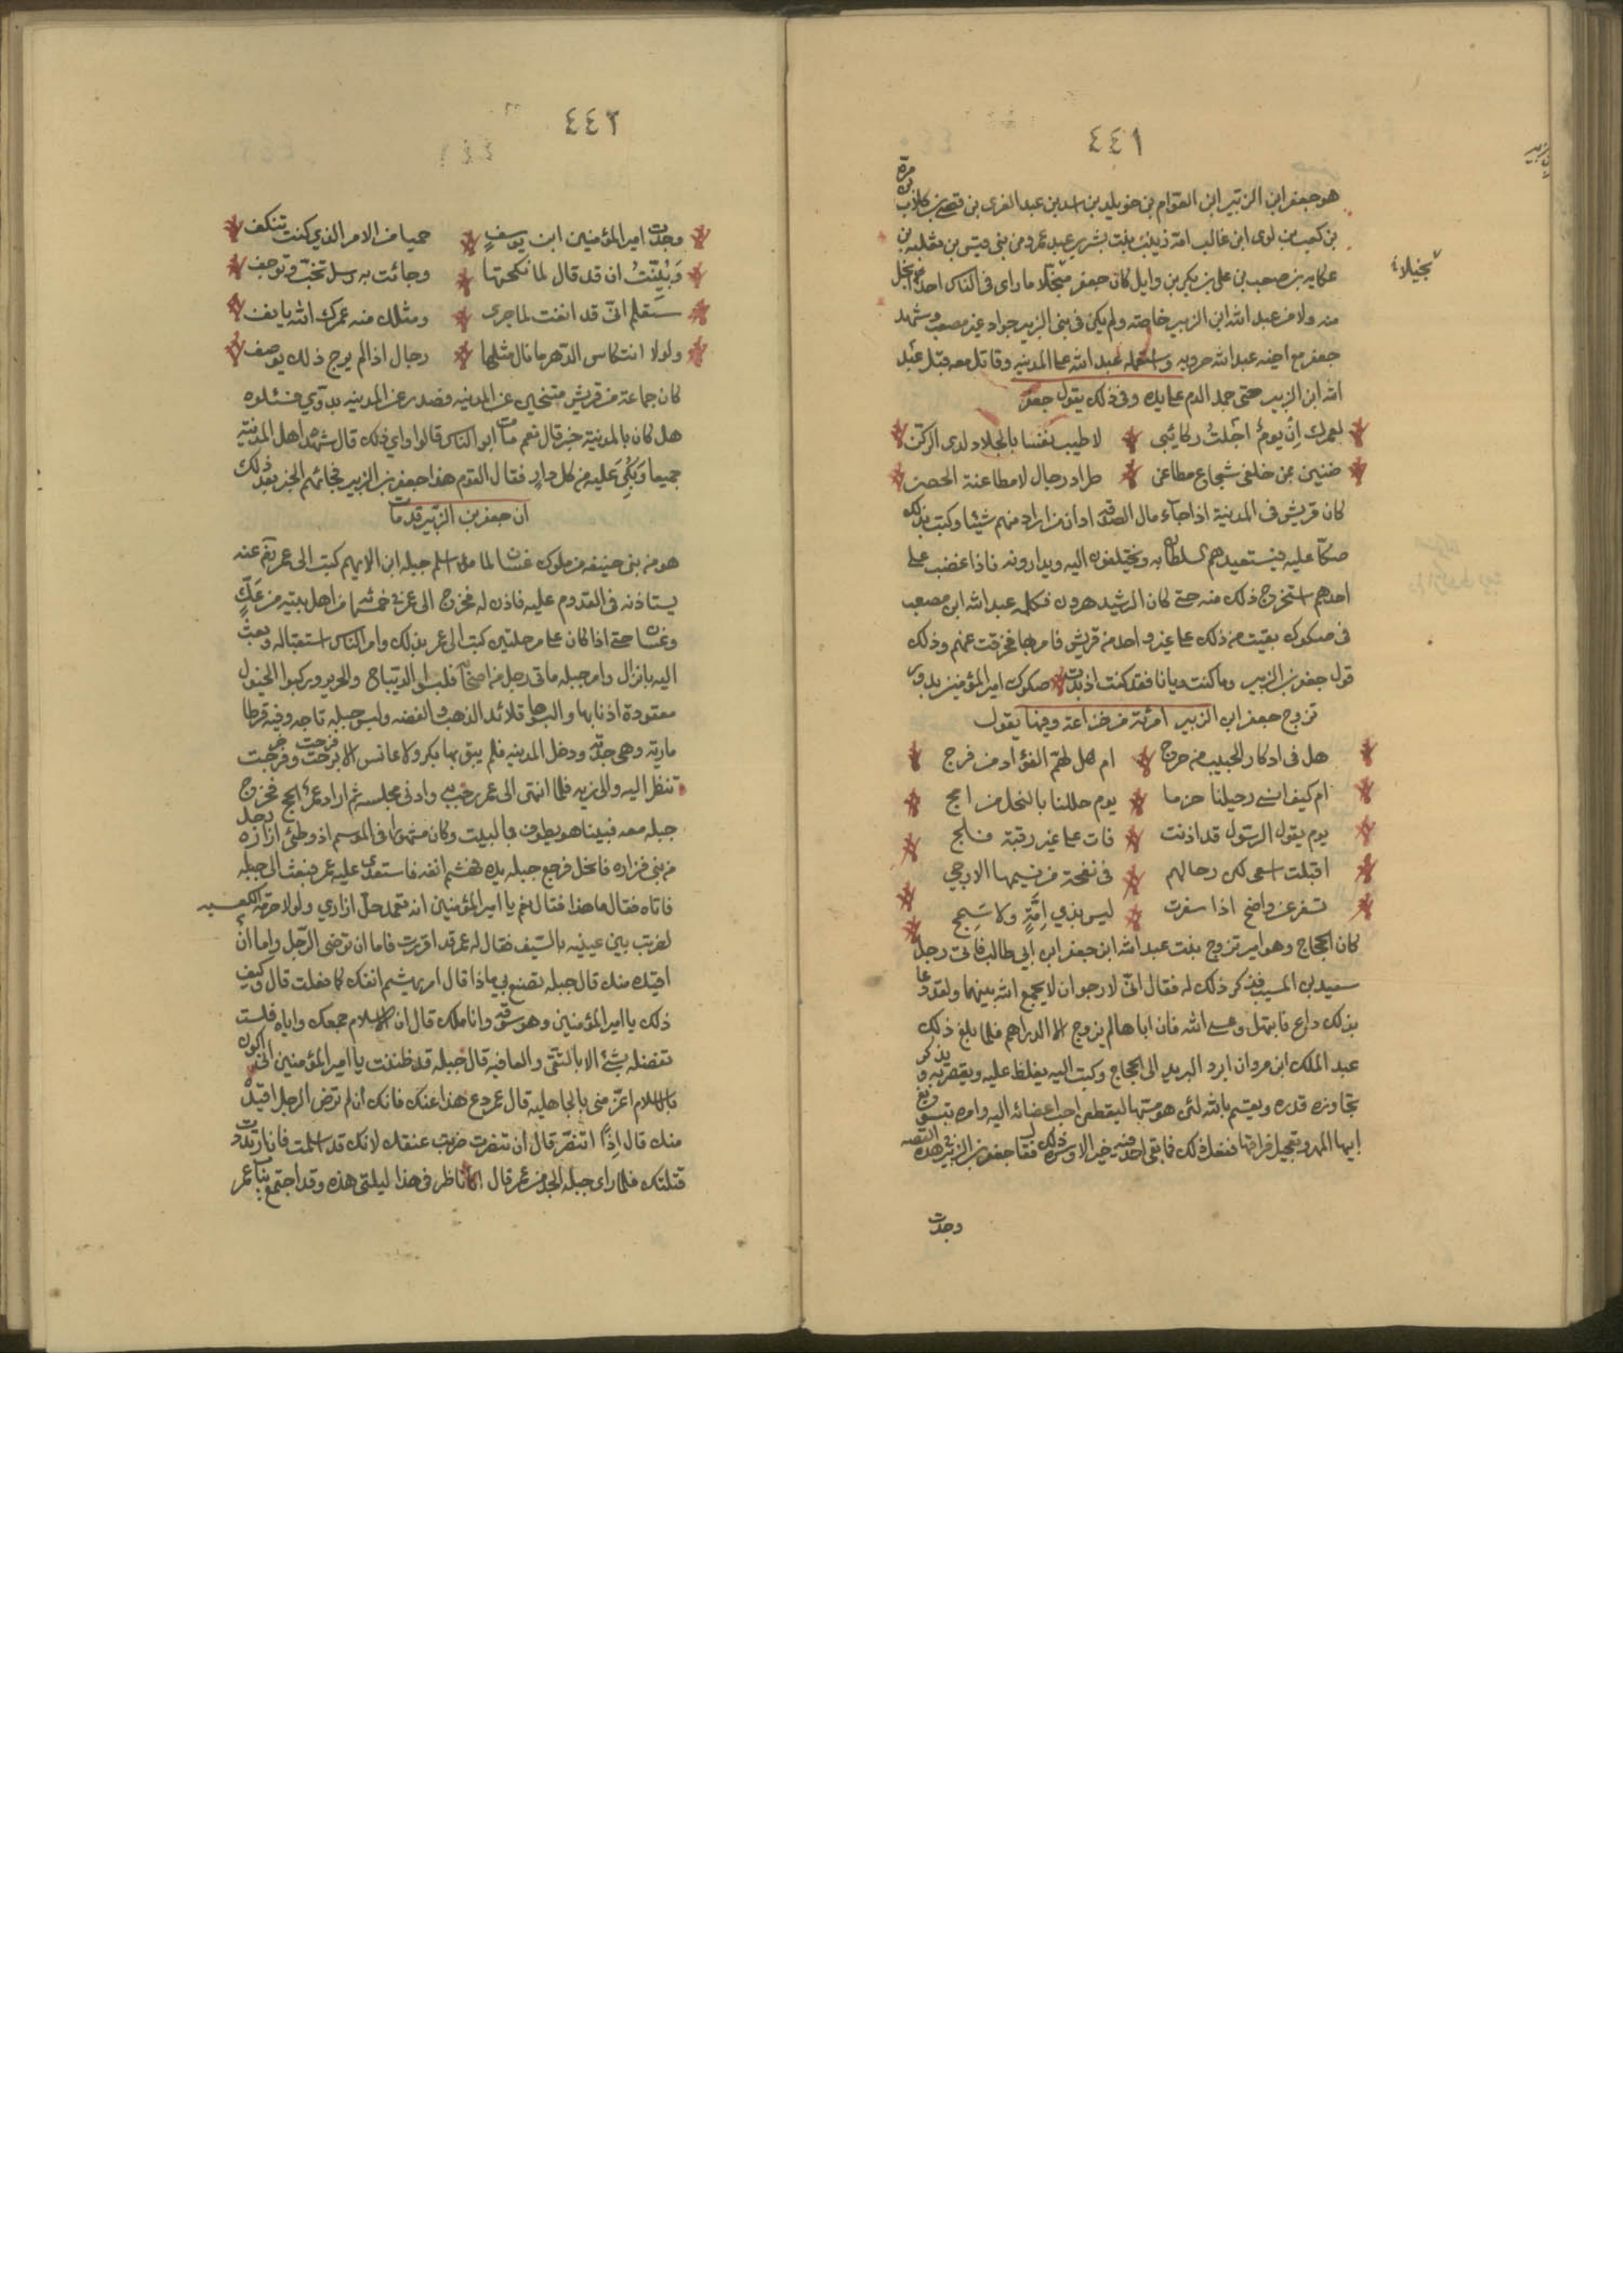 ٤٤١
مرة
هو جعفر ابن الزبير ابن العوام بن خويلد بن اسد بن عبد العزى بن قصى بن كلاب بن
بن كعب بن لوى ابن غالب امه زينب بنت بشر بن عبد عمرو من بنى قيس بن ثعلبه بن
بخيلا
عكابه بن صعب بن على بن بكر بن وايل كان جعفر مبخلا ما راى فى الناس احد ابخل
منه ولا من عبد الله ابن الزبير خاصته ولم يكن فى بنى الزبير جواد غير مصعب وشهد
جعفر مع اخيه عبد الله حروبه واستعمله عبد الله على المدينه وقاتل معه قبل عبد
الله ابن الزبير حتى جمد الدم على يده وفى ذلك يقول جعفر
لعمرك اِنّ يومَ اجلتْ ركائبى لاطيب نفسا بالجلاد لدى الركن
ضنين بمن خلفى شجاع مطاعن طراد رجال لا مطاعنة الحصن
كان قريش فى المدينة اذا جاء مال الصدقه ادان من اراد منهم شيئا وكتب بذلك
صكّا عليه فيستعبدهم السلطان به ويختلفون اليه ويدارونه فاذا غضب على
احدهم استخرج ذلك منه حتى كان الرشيد هرون فكلمه عبد الله ابن مصعب
فى صكوك بقيت من ذلك على غير واحد من قريش فامر بها فخرقت عنهم وذلك
قول جعفر بن الزبير وما كنت ديانا فقد كنت اذ بدت صكوك امير المؤمنين بدور
تزوج جعفر ابن الزبير امرئة من خزاعة وفيها يقول
هل فى ادكار الحبيب من حرج ام هل لهمّ الفؤاد من فرج
ام كيف انسى رحيلنا حزما يوم حللنا بالنخل من امج
يوم يقول الرسول قد اذنت فات على غير رقبة فلج
اقبلت اسعى الى رحالهم فى نفحة من نسيمها الارجى
تسفر عن واضح اذا سفرت ليس بذى اِمَّةٍ ولا سَمِج
كان الحجاج وهو امير تزوج بنت عبد الله ابن جعفر ابن ابى طالب فاتى رجل
سعيد بن المسيب فذكر ذلك له فقال انّى لارجو ان لا يجمع الله بينهما ولقد دعا
بذلك داع فابتهل وعسى الله فان اباها لم يزوج الا الدراهم فلما بلغ ذلك
عبد الملك ابن مروان ابرد البريد الى الحجاج وكتب اليه يغلظ عليه ويقصر به ويذكر
تجاوزه قدره ويقسم بالله لئن هو مسها ليقطعن احب اعضائه اليه وامره بتسويغ
ابيها المهر وتعجيل فراقها ففعل ذلك فما بقى احد فيه خير الا وسره ذلك فقال جعفر بن الزبير فى هذه القصه
وجدت
٤٤٢
وجدت امير المؤمنين ابن يوسف حميا من الامر الذى كنت تنكف
وَنُبِّئتُ ان قد قال لما نكحتها وجائت به رسل تخب وتوجف
ستعلم انّى قد انفت لما جرى ومثلك منه عمرك الله يانف
ولولا انتكاس الدهر ما نال مثلها رجال اذا لم يرج ذلك يوصف
كان جماعة من قريش متنحين عن المدينه فصدر عن المدينه بدوى فسئلوه
هل كان بالمدينة خبر قال نعم مات ابو الناس قالوا واى ذلك قال شهده اهل المدينة
جميعا وَبُكِىَ عليه من كل دارٍ فقال القوم هذا جعفر بن الزبير فجائهم الخبر بعد ذلك
ان جعفر بن الزبير قد مات
هو من بنى حنيفه من ملوك غسان لما اسلم جبله ابن الايهم كتب الى عمر رضى عنه
يستاذنه فى القدوم عليه فاذن له فخرج الى عمر فى خمسمائه من اهل بيته من عَكٍّ
وغسان حتى اذا كان على مرحلتين كتب الى عمر بذلك وامر الناس استقباله وبعث
اليه بانزال وامر جبله مأتى رجل من اصحابه فلبسوا الديباج والحرير وركبوا الخيول
معقودة اذنابها والبسوها قلائد الذهب والفضه ولبس جبله تاجه وفيه قرطا
ماريه وهى جدته ودخل المدينه فلم يبق بها بكر ولا عانس الا تبرجت وخرجت
تنظر اليه والى زيه فلما انتهى الى عمر رحب به وادنى مجلسه ثم اراد عمر الحج فخرج
جبله معه فبينا هو يطوف بالبيت وكان مشهورا فى الموسم اذ وطئ ازاره رجل
من بنى فزاره فانحل فرجع جبله يده فهشم انفه فاستعدى عليه عمر فبعث الى جبله
فاتاه فقال ما هذا فقال نعم يا امير المؤمنين انه تعمد حل ازارى ولولا حرمة الكعبه
لضربت بين عينيه بالسيف فقال له عمر قد اقررت فاما ان ترضى الرّجل واما ان
اقيده منك قال جبله تصنع بى ماذا قال امر بهشم انفك كما فعلت قال وكيف
ذلك يا امير المؤمنين وهو سوقه وانا ملك قال ان الاسلام جمعك واياه فلست
تفضله بشئ الا بالتقى والعافيه قال جبله قد ظننت يا امير المؤمنين انى اكون
فى الاسلام اعزّ منى بالجاهليه قال عمر دع هذا عنك فانك ان لم ترض الرجل اقيده
منك قال اذًا اتنصّر قال ان تنصرت ضربت عنقك لانك قد اسلمت فان ارتددت
قتلتك فلما راى جبله الجد من عمر قال انا ناظر فى هذا ليلتى هذه وقد اجتمع بباب عمر